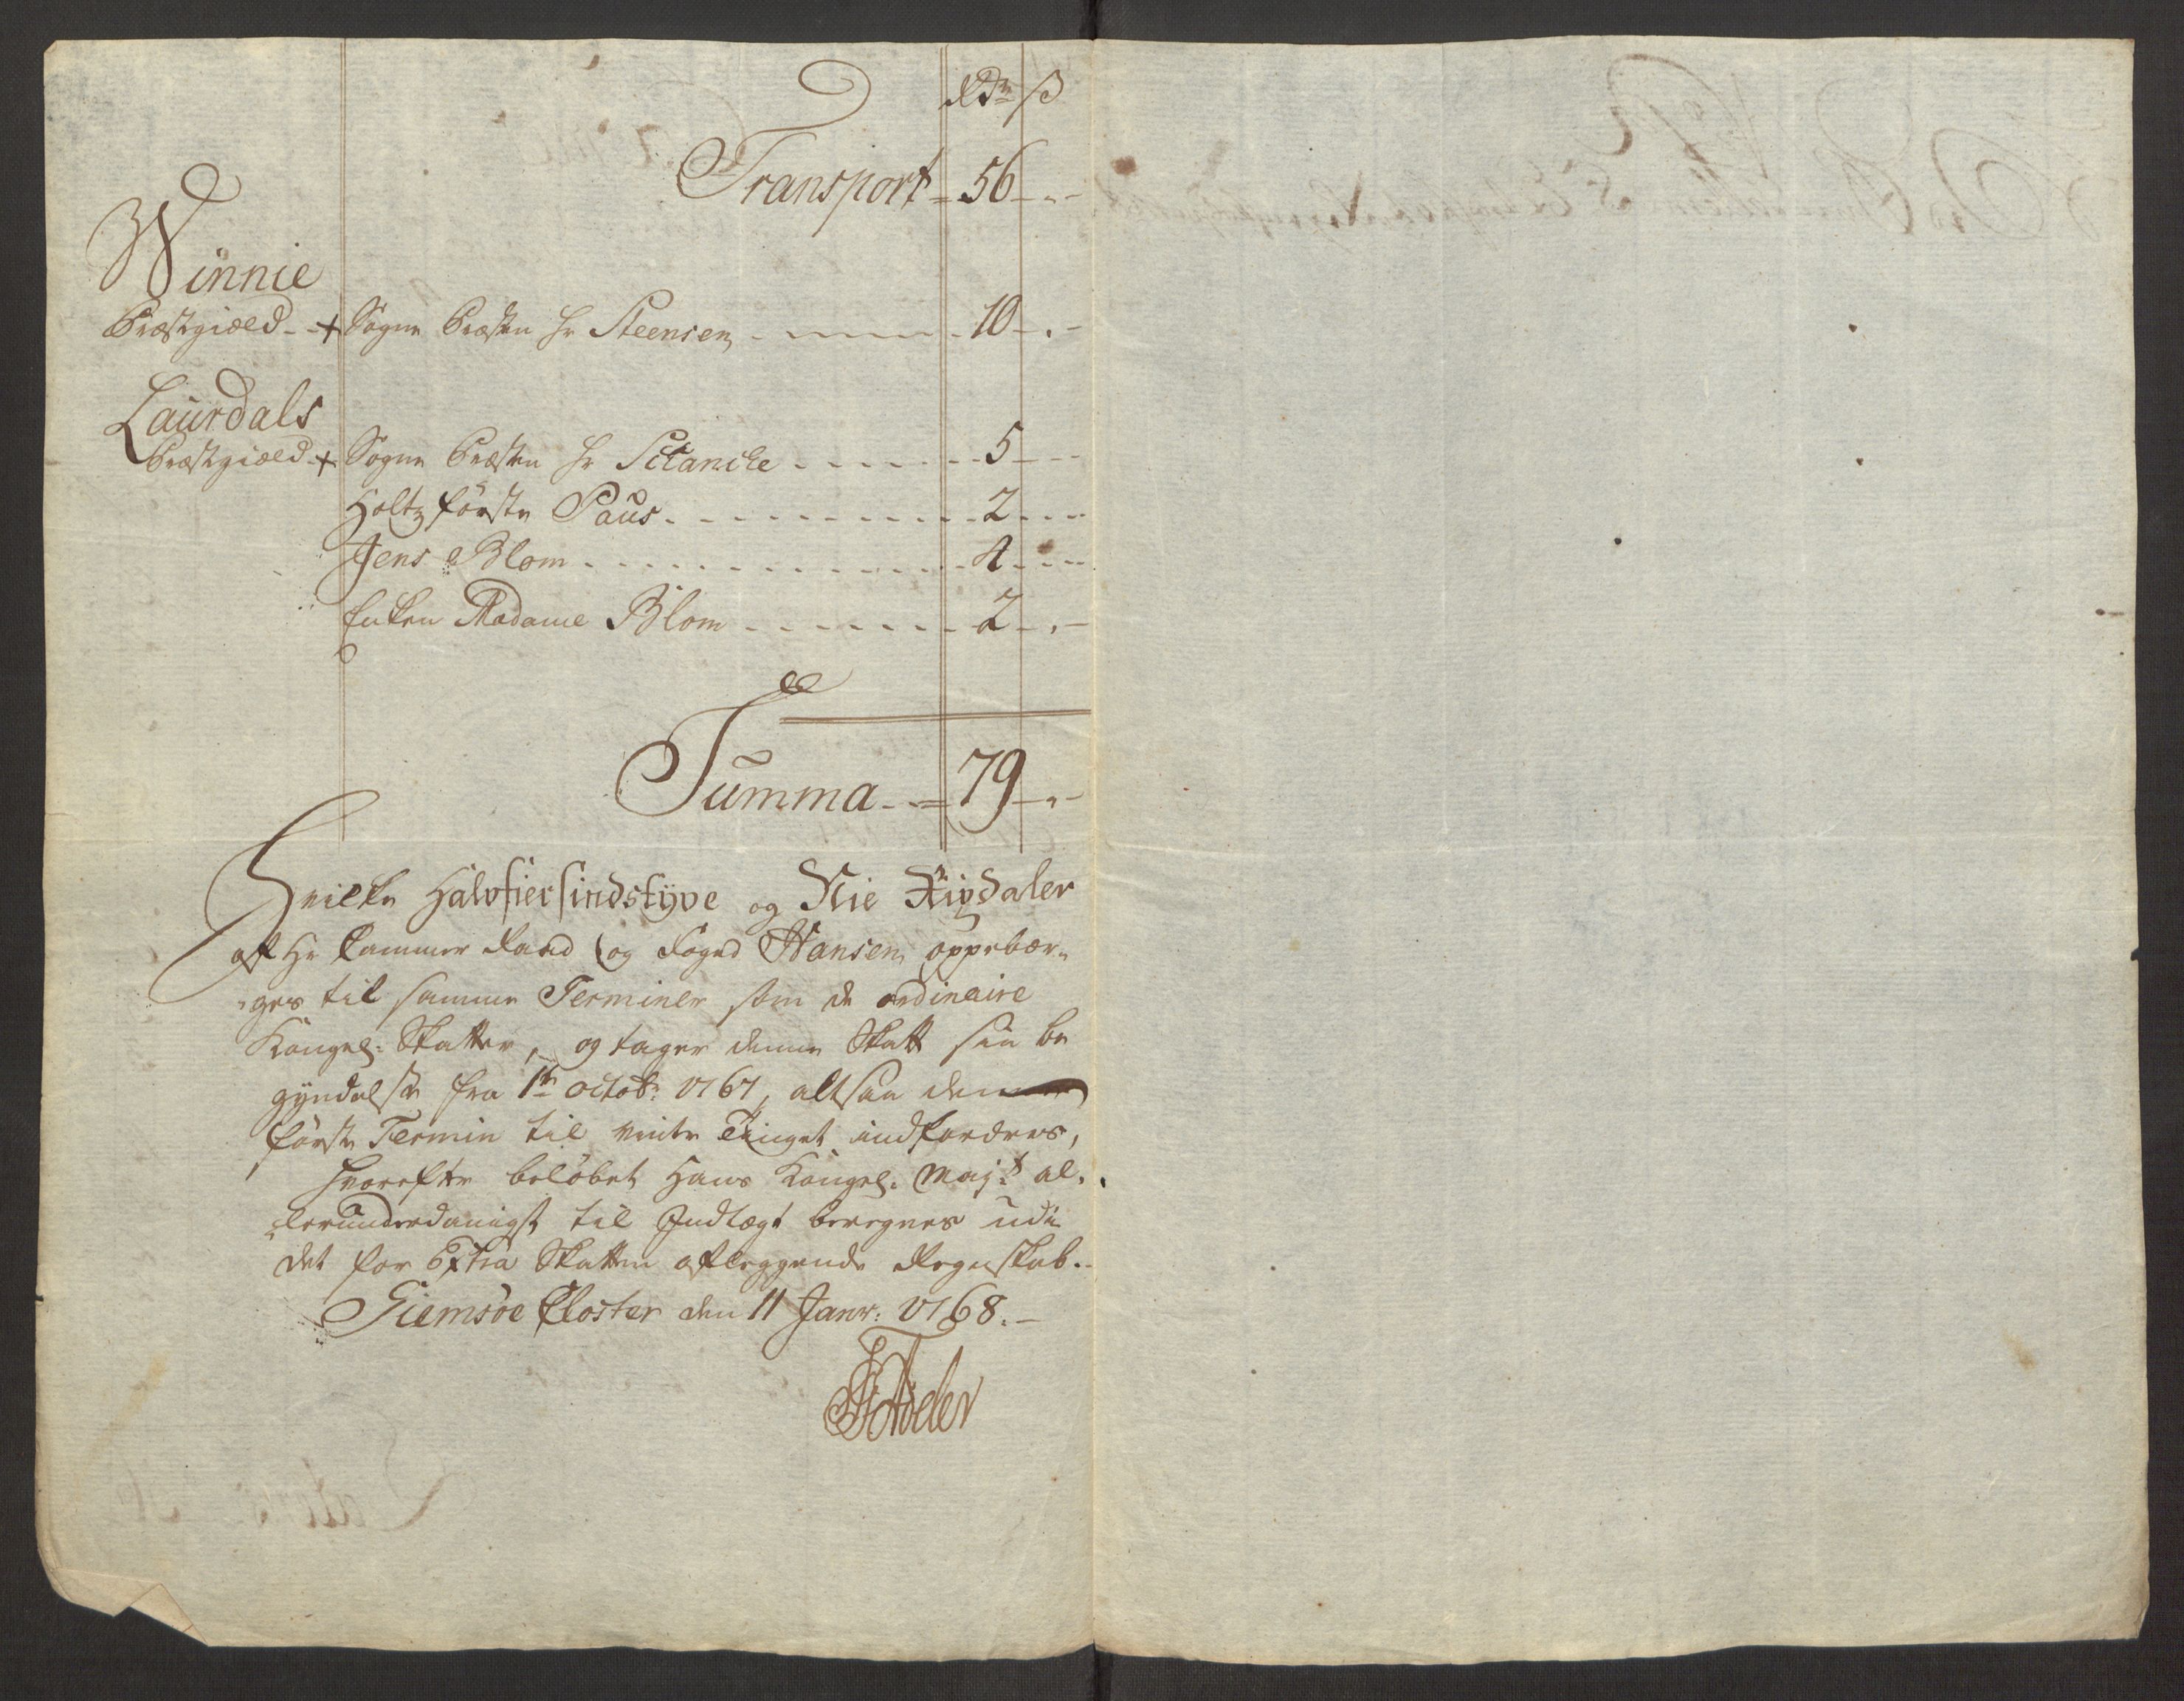 Rdr ß
Transport 56 - -
Winnie
Præstgiæld - + Sogne Præsten Hr Steensen - - - 10 - . -
Laurdals
Præstgiæld + Sogne Præsten Hr Schancke - - - - - 5 - - -
Holtzførster Paus - - - - - - - 2 - - -
Jens Blom - - - - - - - 4 - - -
Enken Madame Blom - - - - - - - 2 - . -
Summa - - 79 - . -
Hvilke Halvfiersindstyve og Nie Rixdaler
af Hr Cammer Raad og Foged Hansen oppebær-
ges til samme Terminer som de ordinaire
Kongel: Skatter, og tager denne Skatt sin be
gyndelse fra 1te Octob: 1767, altsaa den
første Termin til vinter Tinget indfordres,
hvorefter beløbet Hans Kongel. Majt al.
lerunderdanigst til Indtægt beregnes udi
det for Extra Skatten aflæggende Regnskab.
Giemsøe Closter den 11 Janr: 1768. -
Adeler